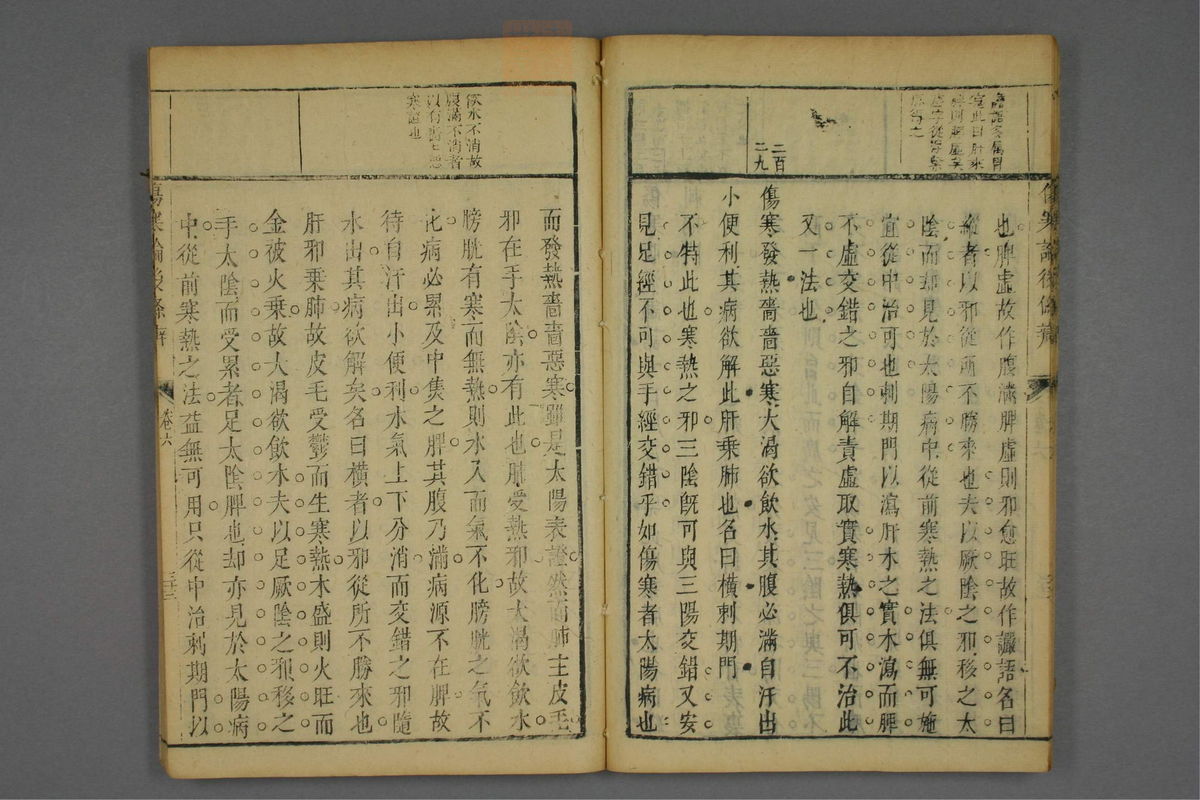 也脾虛故作腹滿脾虛則邪愈旺故作讝語名曰
縱者以邪從所不勝來也夫以厥陰之邪移之太
陰而却見於太陽病中從前寒熱之法俱無可施
宜從中治可也刺期門以瀉肝木之實木瀉而脾
不虛交錯之邪自解責虛取實寒熱俱可不治此
又一法也
二百
二九
傷寒發熱嗇嗇惡寒大渴欲飲水其腹必滿自汗出
小便利其病欲解此肝乘肺也名曰橫刺期門
不特此也寒熱之邪三陰旣可與三陽交錯又安
見足經不可與手經交錯乎如傷寒者太陽病也
欲水不消故
腹滿不消者
寒證也
而發熱嗇嗇惡寒雖是太陽表證然而肺主皮毛
邪在手太陰亦有此也肺受熱邪故大渴欲飲水
膀胱有寒而無熱則水入而氣不化膀胱之氣不
化病必累及中焦之脾其腹乃滿病源不在脾故
待自汗出小便利水氣上下分消而交錯之邪隨
水出其病欲解矣名曰橫者以邪從所不勝來也
肝邪乘肺故皮毛受鬱而生寒熱木盛則火旺而
金被火乘故大渴欲飲水夫以足厥陰之邪移之
手太陰而受累者足太陰脾也却亦見於太陽病
中從前寒熱之法益無可用只從中治刺期門以
傷寒論後條辨
卷六
三十三